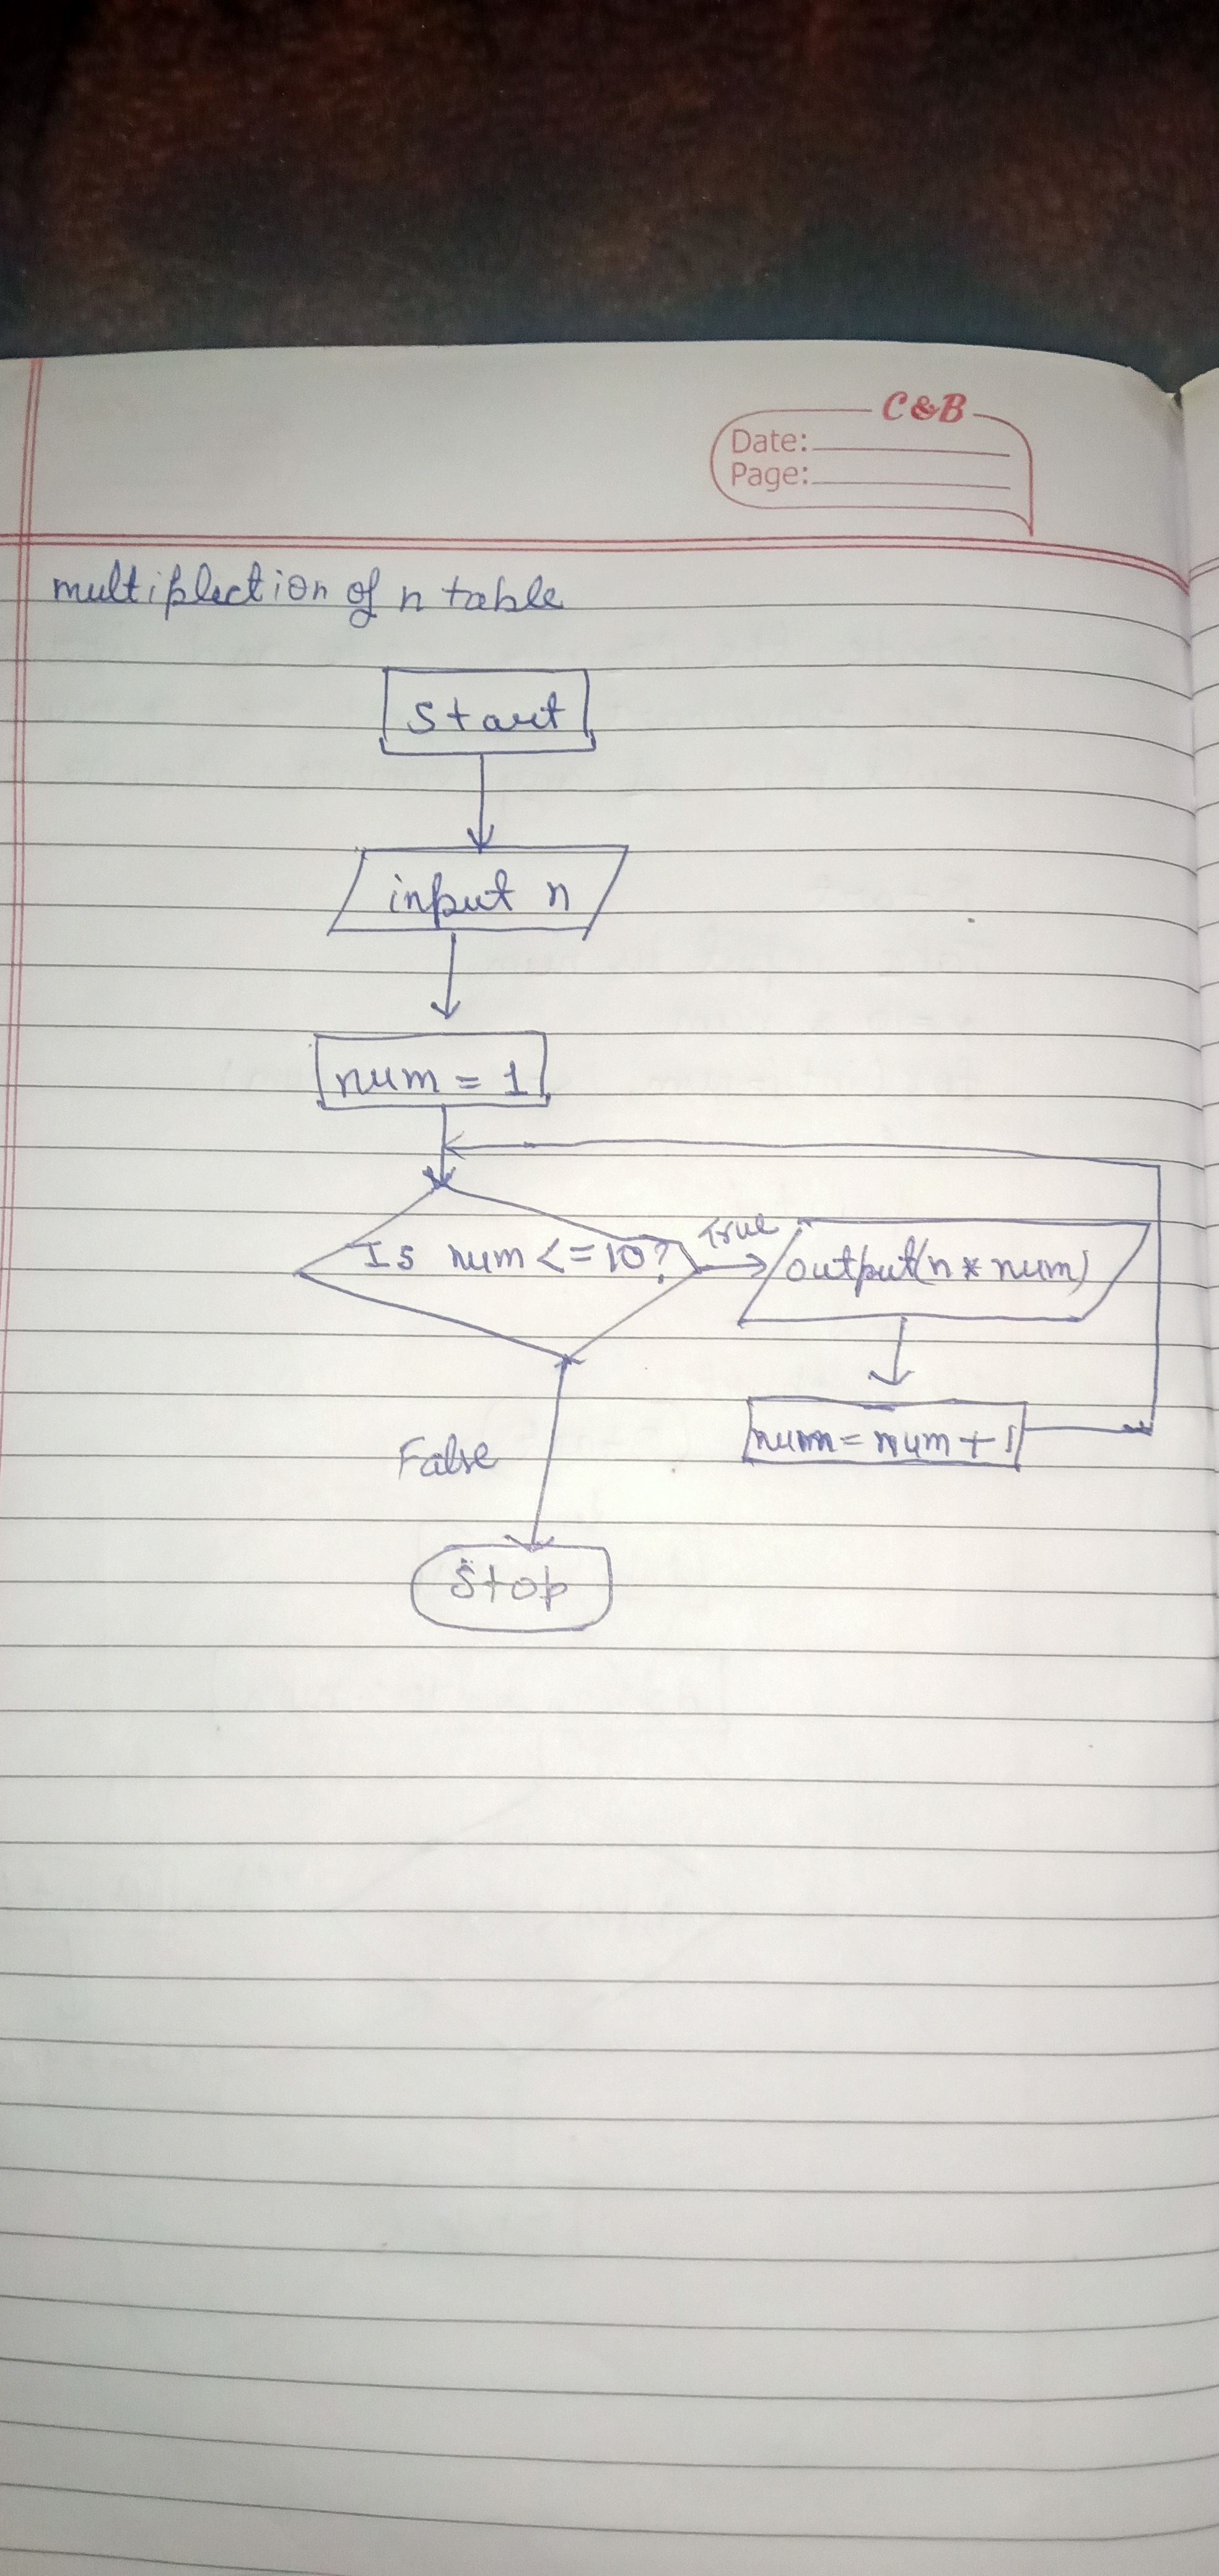 C&B
Date:
Page:
multiplection of n table
Start
input n
num = 1
Is num <= 10?
True
output(n * num)
num = num + 1
False
Stop